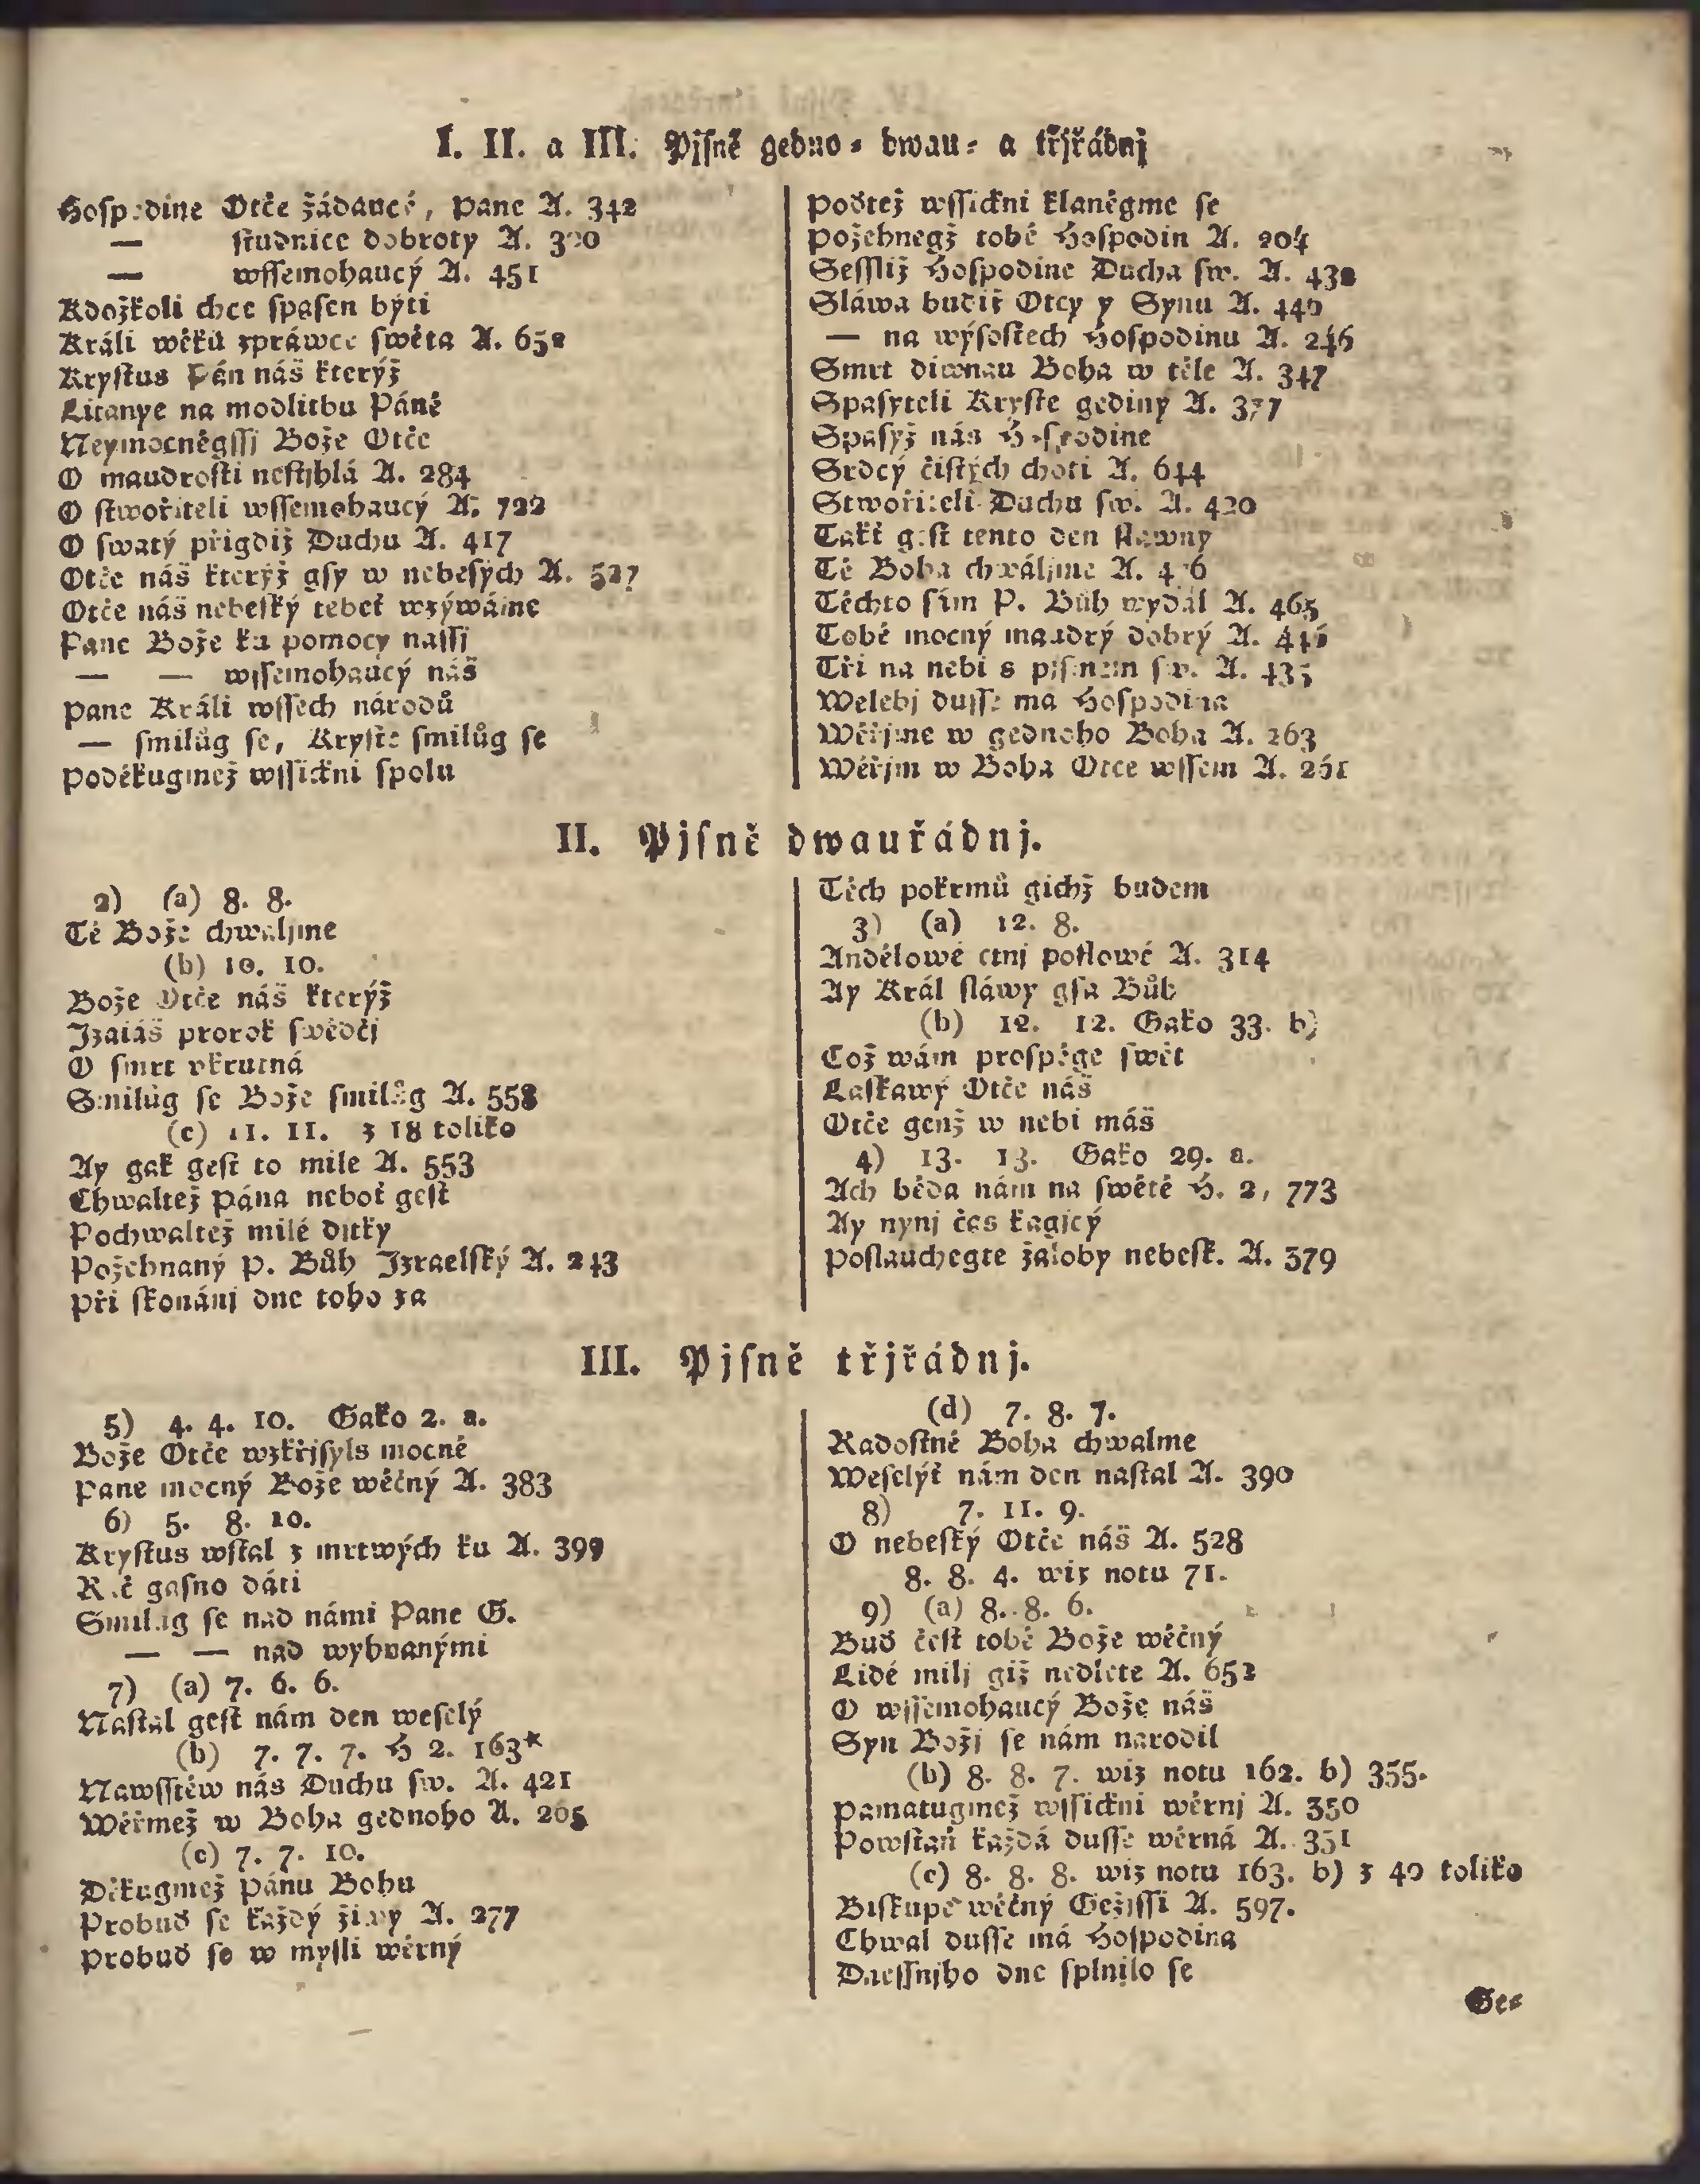 I. II. a III. Pjſně gedno- dwau- a třjřádnj
Hoſpodine Otče žádaucý, Pane A. 342
— ſtudnice dobroty A.
— wſſemohaucý A. 451
Kdožkoli chce ſpaſen býti
Králi wěků zpráwce ſwěta A. 652
Kryſtus Pán náš kterýž
Litanye na modlitbu Páně
Neymocněgſſj Bože Otče
O maudroſti neſtjhlá A. 284
O ſtwořiteli wſſemohaucý A. 722
O ſwatý přigdiž Duchu A. 417
Otče náš kterýž gſy w nebeſých A. 527
Otče náš nebeſký tebeť wzýwáme
Pane Bože ku pomocy naſſj
— — wſſemohaucý náš
Pane Králi wſſech národů
— ſmilůg ſe, Kryſte ſmilůg ſe
Poděkugmež wſſickni ſpolu
Poďtež wſſickni klaněgme ſe
Požehnegž tobě Hoſpodin A. 204
Seſſliž Hoſpodine Ducha ſw. A. 438
Sláwa budiž Otcy y Synu A. 440
— na wýſoſtech Hoſpodinu A. 246
Smrt diwnau Boha w těle A. 347
Spaſyteli Kryſte gediný A. 377
Spaſyž nás Hoſpodine
Srdcý čiſtých choti A. 644
Stwořiteli Duchu ſw. A. 420
Takť geſt tento den ſlawný
Tě Boha chwáljme A.
Těchto ſém P. Bůh wydal A. 465
Tobě mocný maudrý dobrý A.
Tři na nebi s pjſmem ſw. A. 435
Welebj duſſe má Hoſpodina
Wěřjme w gednoho Boha A. 263
Wěřjm w Boha Otce wſſem A. 261
II. Pjſně dwauřádnj.
2) (a) 8. 8.
Tě Bože chwaljme
(b) 10. 10.
Bože Otče náš kterýž
Izaiáš prorok ſwědčj
O ſmrt vkrutná
Smilůg ſe Bože ſmilůg A. 558
(c) 11. 11. z 18 toliko
Ay gak geſt to milé A. 553
Chwaltež Pána neboť geſt
Pochwaltež milé djtky
Požehnaný P. Bůh Izraelſký A. 243
Při ſkonánj dne toho za
Těch pokrmů gichž budem
3) (a) 12. 8.
Andělowé ctnj poſlowé A. 314
Ay Král ſláwy gſa Bůh
(b) 12. 12. Gako 33. b)
Což wám proſpěge ſwět
Laſkawý Otče náš
Otče genž w nebi máš
4) 13. 13. Gako 29. a.
Ach běda nám na ſwětě H. 2, 773
Ay nynj čas kagjcý
Poſlauchegte žaloby nebeſk. A. 379
III. Pjſně třjřádnj.
5) 4. 4. 10. Gako 2. a.
Bože Otče wzkřjſyls mocně
Pane mocný Bože wěčný A. 383
6) 5. 8. 10.
Kryſtus wſtal z mrtwých ku A. 399
Rač gaſno dáti
Smilůg ſe nad námi Pane G.
— — nad wyhnanými
7) (a) 7. 6. 6.
Naſtal geſt nám den weſelý
(b) 7. 7. 7. H 2. 163*
Nawſſtěw nás Duchu ſw. A. 421
Wěřmež w Boha gednoho A. 265
(c) 7. 7. 10.
Děkugmež Pánu Bohu
Probuď ſe každý žiwý A. 277
Probuď ſe w myſli wěrný
(d) 7. 8. 7.
Radoſtně Boha chwalme
Weſelýť nám den naſtal A. 390
8) 7. 11. 9.
O nebeſký Otče náš A. 528
8. 8. 4. wiz notu 71.
9) (a) 8. 8. 6.
Buď čeſt tobě Bože wěčný
Lidé milj giž nedlete A. 652
O wſſemohaucý Bože náš
Syn Božj ſe nám narodil
(b) 8. 8. 7. wiz notu 162. b) 355.
Pamatugmež wſſickni wěrnj A. 350
Powſtaň každá duſſe wěrná A. 351
(c) 8. 8. 8. wiz notu 163. b) z 40 toliko
Biſkupe wěčný Gežjſſi A. 597.
Chwal duſſe má Hoſpodina
Dneſſnjho dne ſplnilo ſe
Ge-